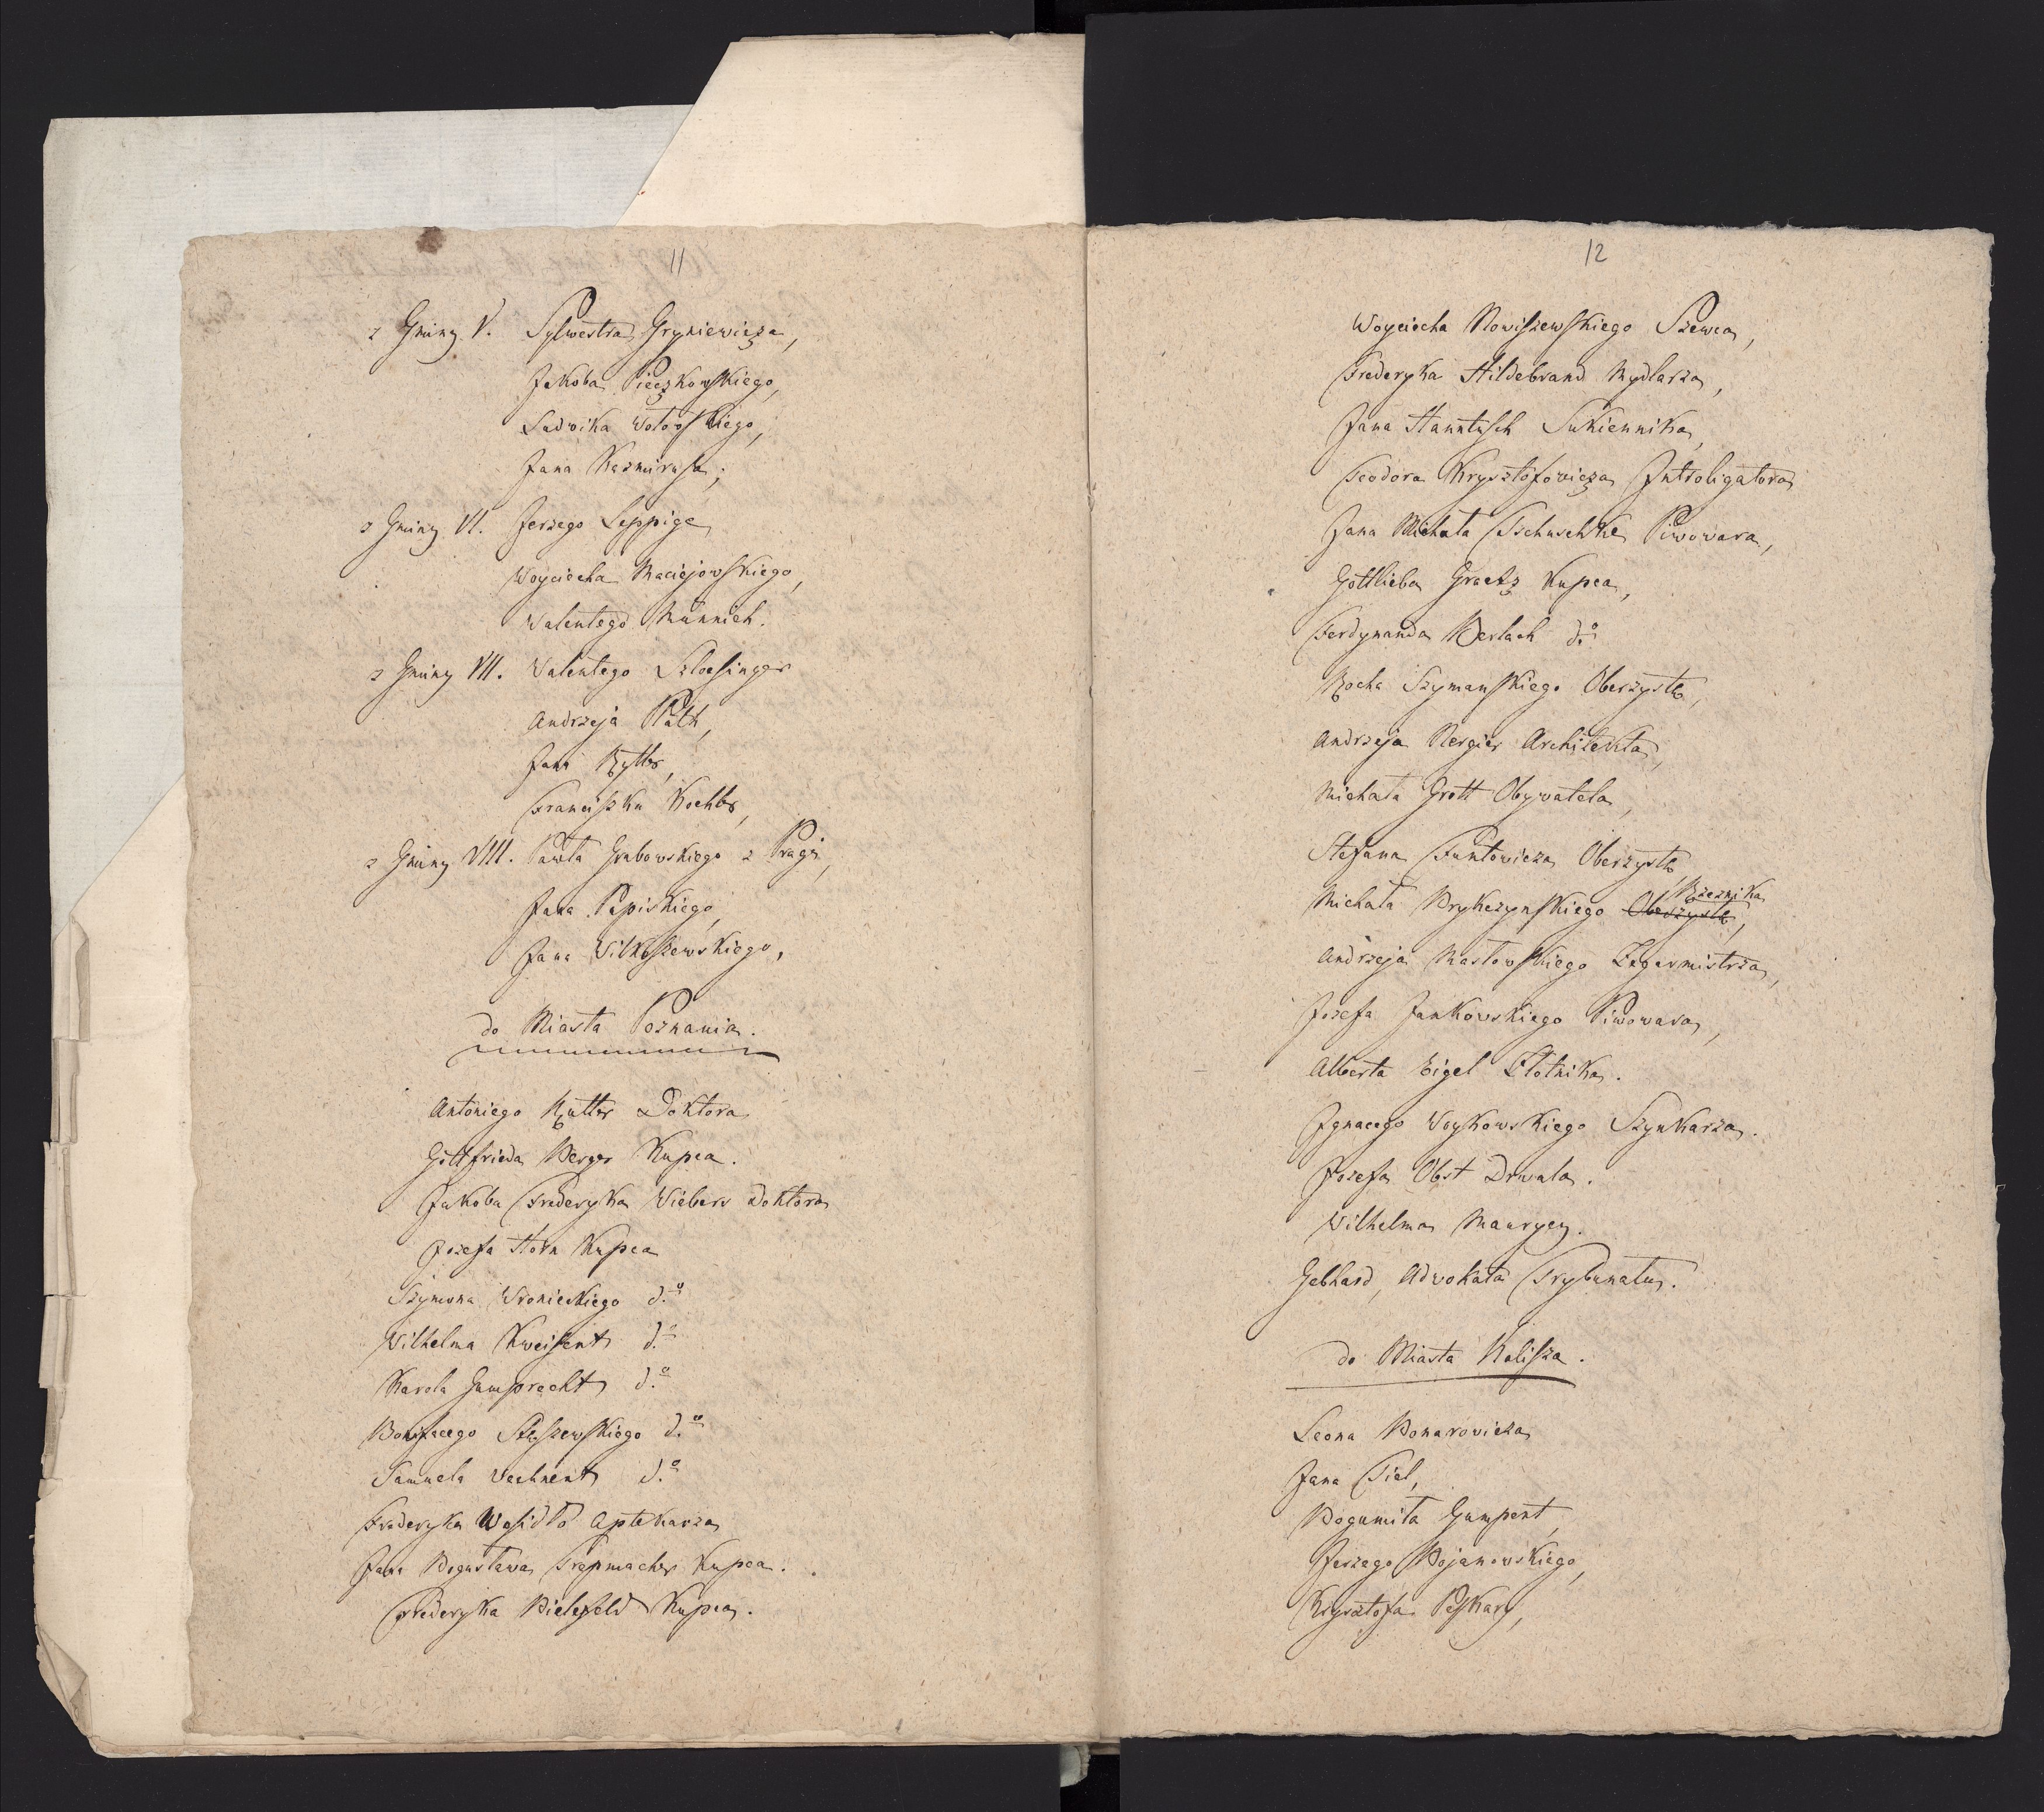 11
z Gminy V. Sylwestra Gryniewicza,
Jakoba Pieczkowskiego,
Ludwika Wołowskiego,
Jana Kazmirusa;
z Gminy VI. Jerzego Leppige
Woyciecha Maciejowskiego,
Walentego Münnich.
z Gminy VII. Valentego Szloesinger
Andrzeja Path,
Jana Rytter,
Franciszka Kochler,
z Gminy VIII. Pawła Grabowskiego z Pragi,
Jana Papiskiego,
Jana Vilkoszewskiego,
do Miasta Poznania.
Antoniego Rutter Doktora
Gottfrieda Berger Kupca.
Jakoba Frederyka Viebers Doktora
Jozefa Horn Kupca
Szymona Wronieckiego d.o
Vilhelma Kweisent d.o
Karola Gumprecht d.o
Bonifacego Staszewskiego d.o
Samuela Vechnent d.o
Frederyka Wasidło Aptekarza
Jana Bogusława Trepmacher Kupca.
Frederyka Bielefeld Kupca.
12
Woyciecha Nowiszewskiego Szewca,
Frederyka Hildebrand Mydlarza,
Jana Hanntusch Sukiennika,
Teodora Krysztofowicza Introligatora
Jana Michała Tschuschke Piwowara,
Gottlieba Graetz Kupca,
Ferdynanda Berlach d.o
Rocha Szymanskiego Oberzystę,
Andrzeja Nergier Architekta,
Michała Grott Obywatela,
Stefana Funtowicza Oberzystę
Michała Brykczynskiego Oberzystę, Rzeznika
Andrzeja Masłowskiego Zegarmistrza,
Jozefa Jankowskiego Piwowara,
Alberta Eigel Złotnika.
Ignacego Woykowskiego Szynkarza.
Jozefa Obst Drwala.
Wilhelma Maurycy.
Gebhard, Advokata Trybunatu.
do Miasta Kalisza.
Leona Bonarowicza
Jana Tiel,
Bogumiła Gumpent,
Jerzego Bojanowskiego,
Krysztofa Peskary,